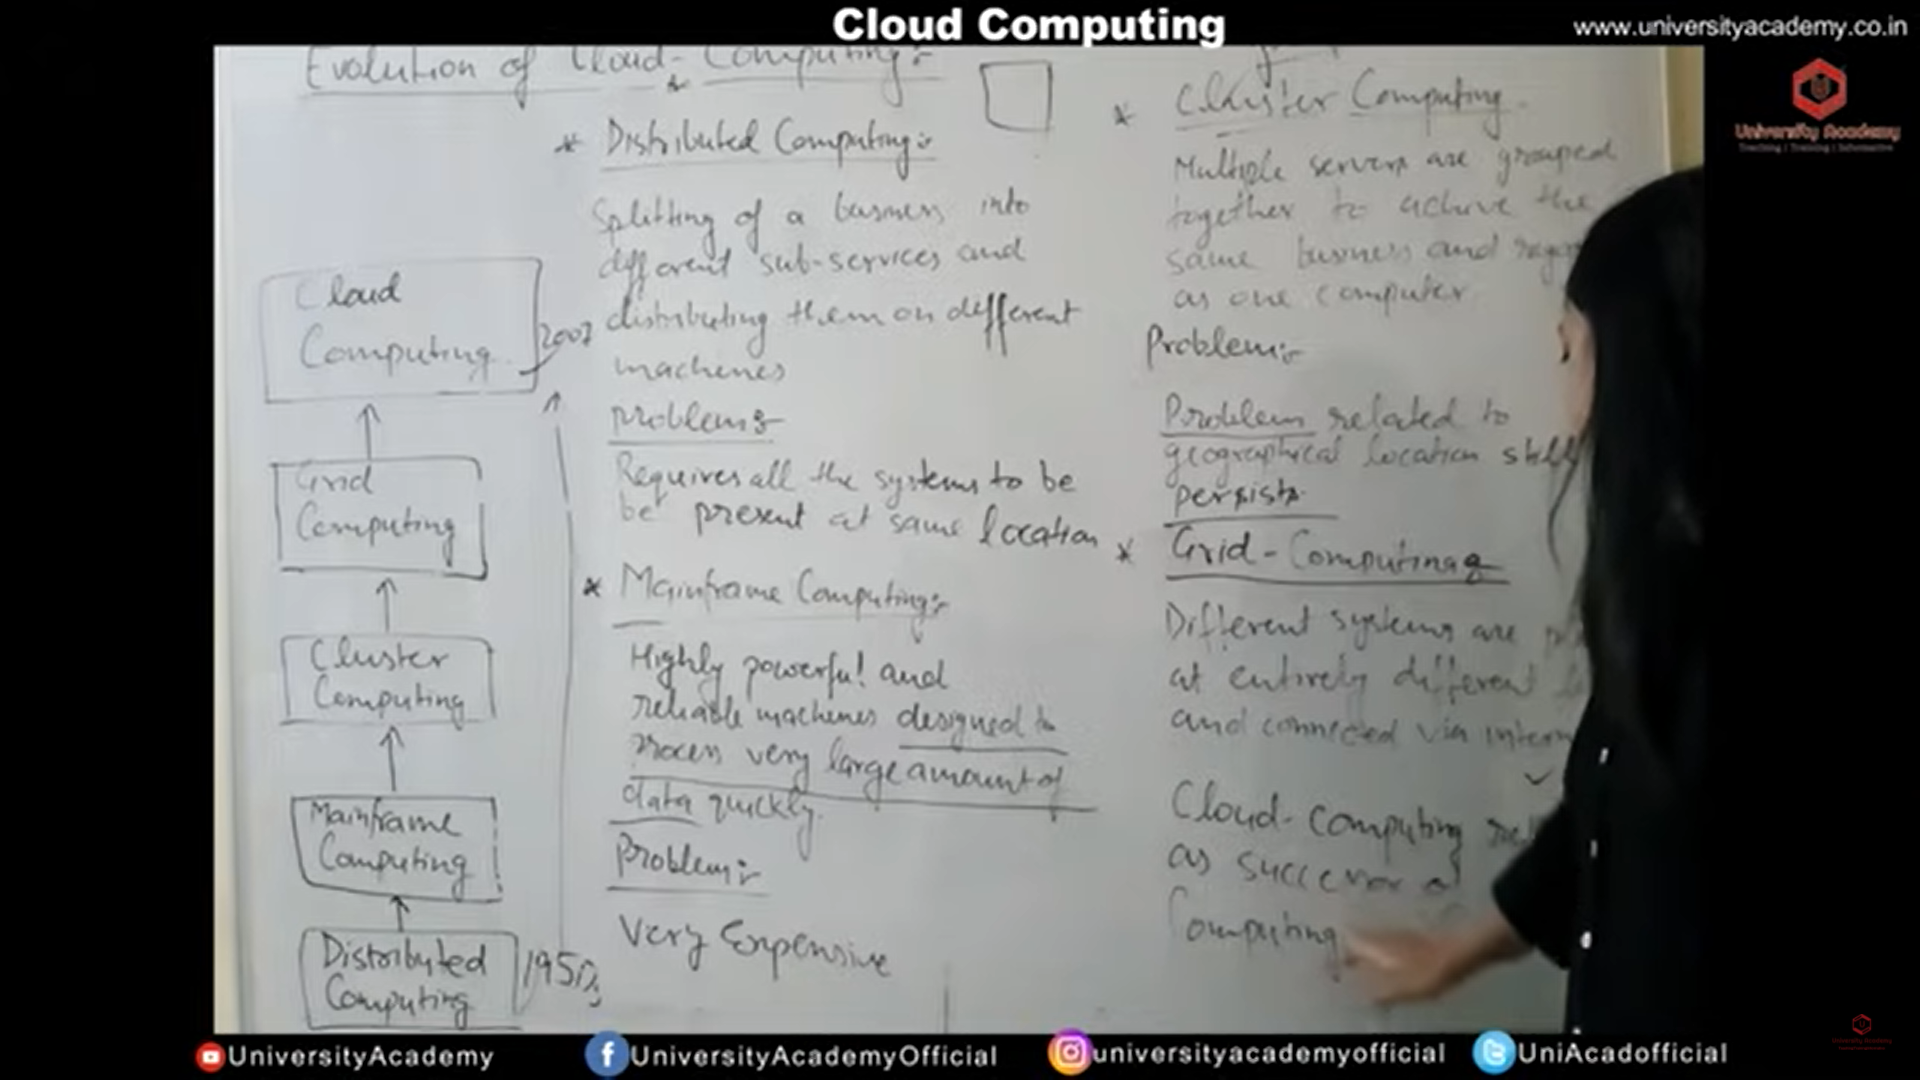 Cloud Computing
www.universityacademy.co.in
University Academy
Teaching | Training | Informative
Evolution of Cloud-Computing:-
Cloud
Computing
2007
Grid
Computing
Cluster
Computing
Mainframe
Computing
Distributed
Computing
1950s
* Distributed Computing:-
Splitting of a business into
different sub-services and
distributing them on different
machines
problems:-
Requires all the systems to be
be present at same location
* Mainframe Computing:-
Highly powerful and
reliable machines designed to
process very large amount of
data quickly.
Problem:-
Very Expensive
* Cluster Computing
Multiple servers are grouped
together to achive the
same business and
as one computer
Problem:-
Problem related to
geographical location still
persists
* Grid-Computing
Different systems are
at entirely different
and connected via
Cloud-Computing
as successor of
Computing
UniversityAcademy
UniversityAcademyOfficial
universityacademyofficial
UniAcadofficial